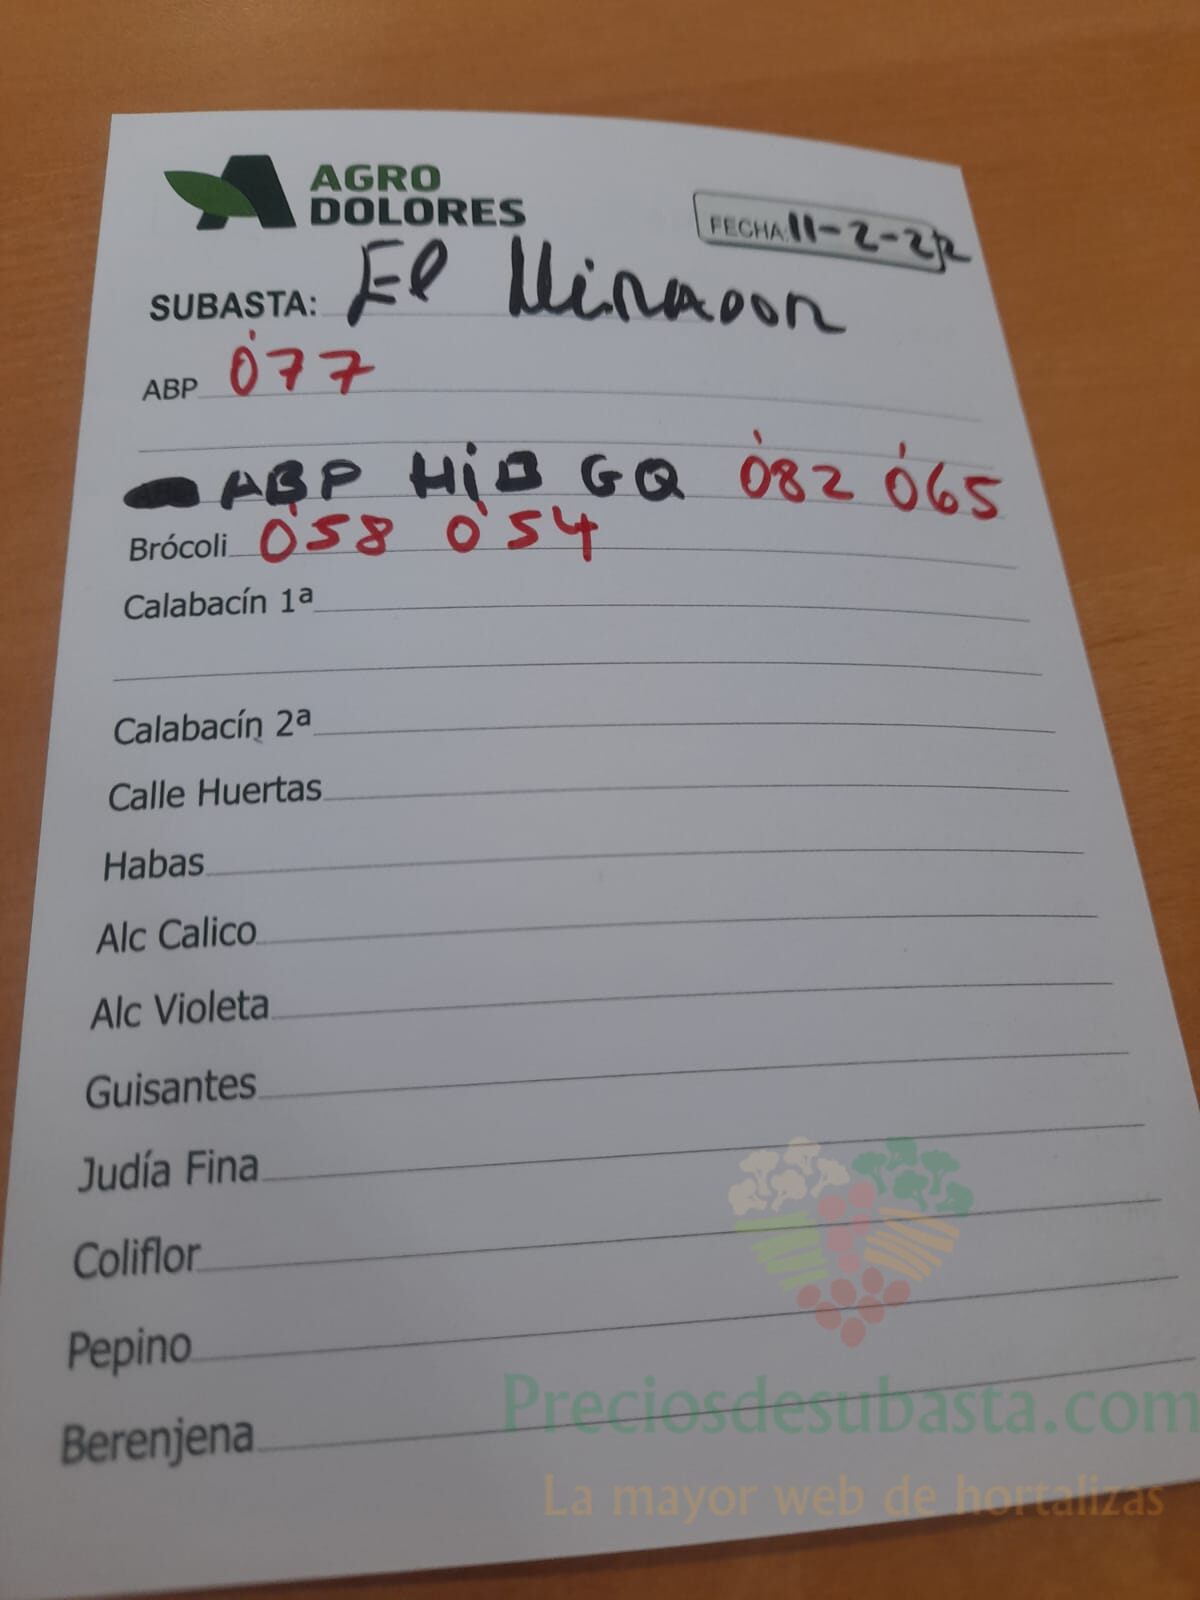 AGRO
DOLORES
FECHA: 11-2-22
SUBASTA: El Mirador
ABP 0'77
ABP HiB GQ 0'82 0'65
Brócoli 0'58 0'54
Calabacín 1ª
Calabacín 2ª
Calle Huertas
Habas
Alc Calico
Alc Violeta
Guisantes
Judía Fina
Coliflor
Pepino
Berenjena
Preciosdesubasta.com
La mayor web de hortalizas